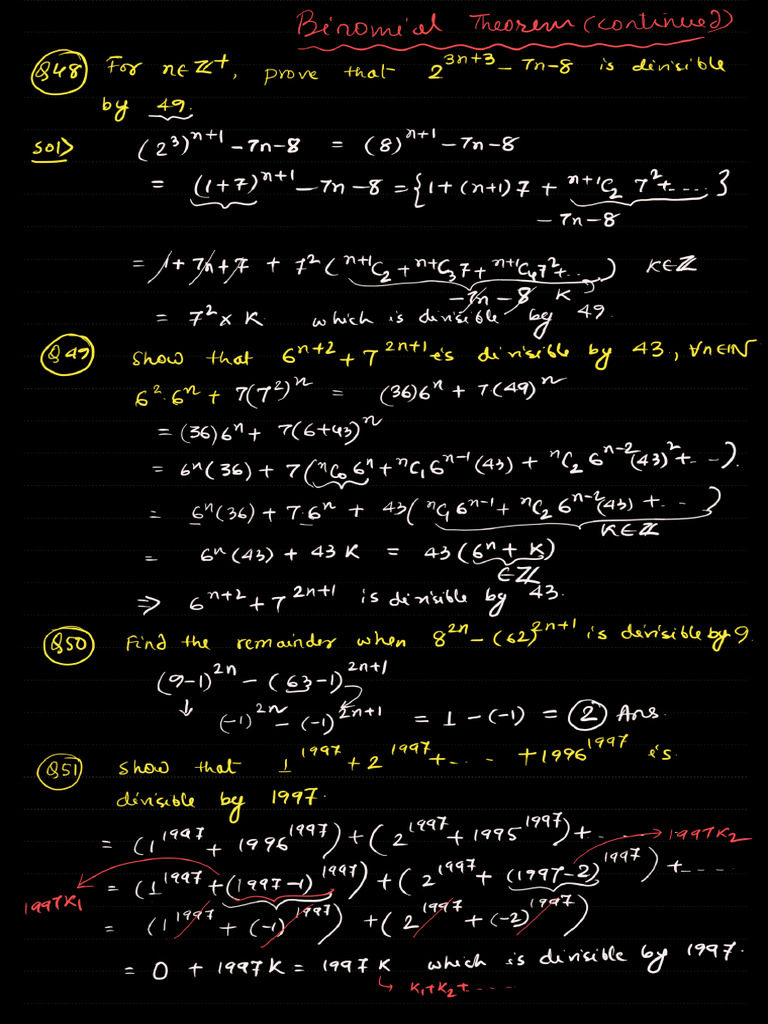 Binomial Theorem (continued)
Q48 For n∈Z⁺, prove that 2^(3n+3) - 7n - 8 is divisible
by 49.
Sol> (2³)^(n+1) - 7n - 8 = (8)^(n+1) - 7n - 8
= (1+7)^(n+1) - 7n - 8 = {1 + (n+1)7 + ⁿ⁺¹C₂ 7² + ...}
- 7n - 8
= 1 + 7n + 7 + 7² (ⁿ⁺¹C₂ + ⁿ⁺¹C₃7 + ⁿ⁺¹C₄7² + ...) K∈Z
- 7n - 8 K
= 7² × K which is divisible by 49.
Q49 Show that 6^(n+2) + 7^(2n+1) is divisible by 43, ∀n∈IN
6²·6ⁿ + 7(7²)ⁿ = (36)6ⁿ + 7(49)ⁿ
= (36)6ⁿ + 7(6+43)ⁿ
= 6ⁿ(36) + 7(ⁿC₀6ⁿ + ⁿC₁6ⁿ⁻¹(43) + ⁿC₂6ⁿ⁻²(43)² + ...).
= 6ⁿ(36) + 7·6ⁿ + 43(ⁿC₁6ⁿ⁻¹ + ⁿC₂6ⁿ⁻²(43) + ...)
K∈Z
= 6ⁿ(43) + 43K = 43(6ⁿ + K)
∈Z
⇒ 6^(n+2) + 7^(2n+1) is divisible by 43.
Q50 Find the remainder when 8^(2n) - (62)^(2n+1) is divisible by 9.
(9-1)^(2n) - (63-1)^(2n+1)
↓ (-1)^(2n) - (-1)^(2n+1) = 1 - (-1) = 2 Ans.
Q51 Show that 1^1997 + 2^1997 + ... + 1996^1997 is
divisible by 1997.
= (1^1997 + 1996^1997) + (2^1997 + 1995^1997) + ... → 1997K₂
= (1^1997 + (1997-1)^1997) + (2^1997 + (1997-2)^1997) + ...
1997K₁
= (1^1997 + (-1)^1997) + (2^1997 + (-2)^1997)
= 0 + 1997K = 1997K which is divisible by 1997.
↳ K₁+K₂+...